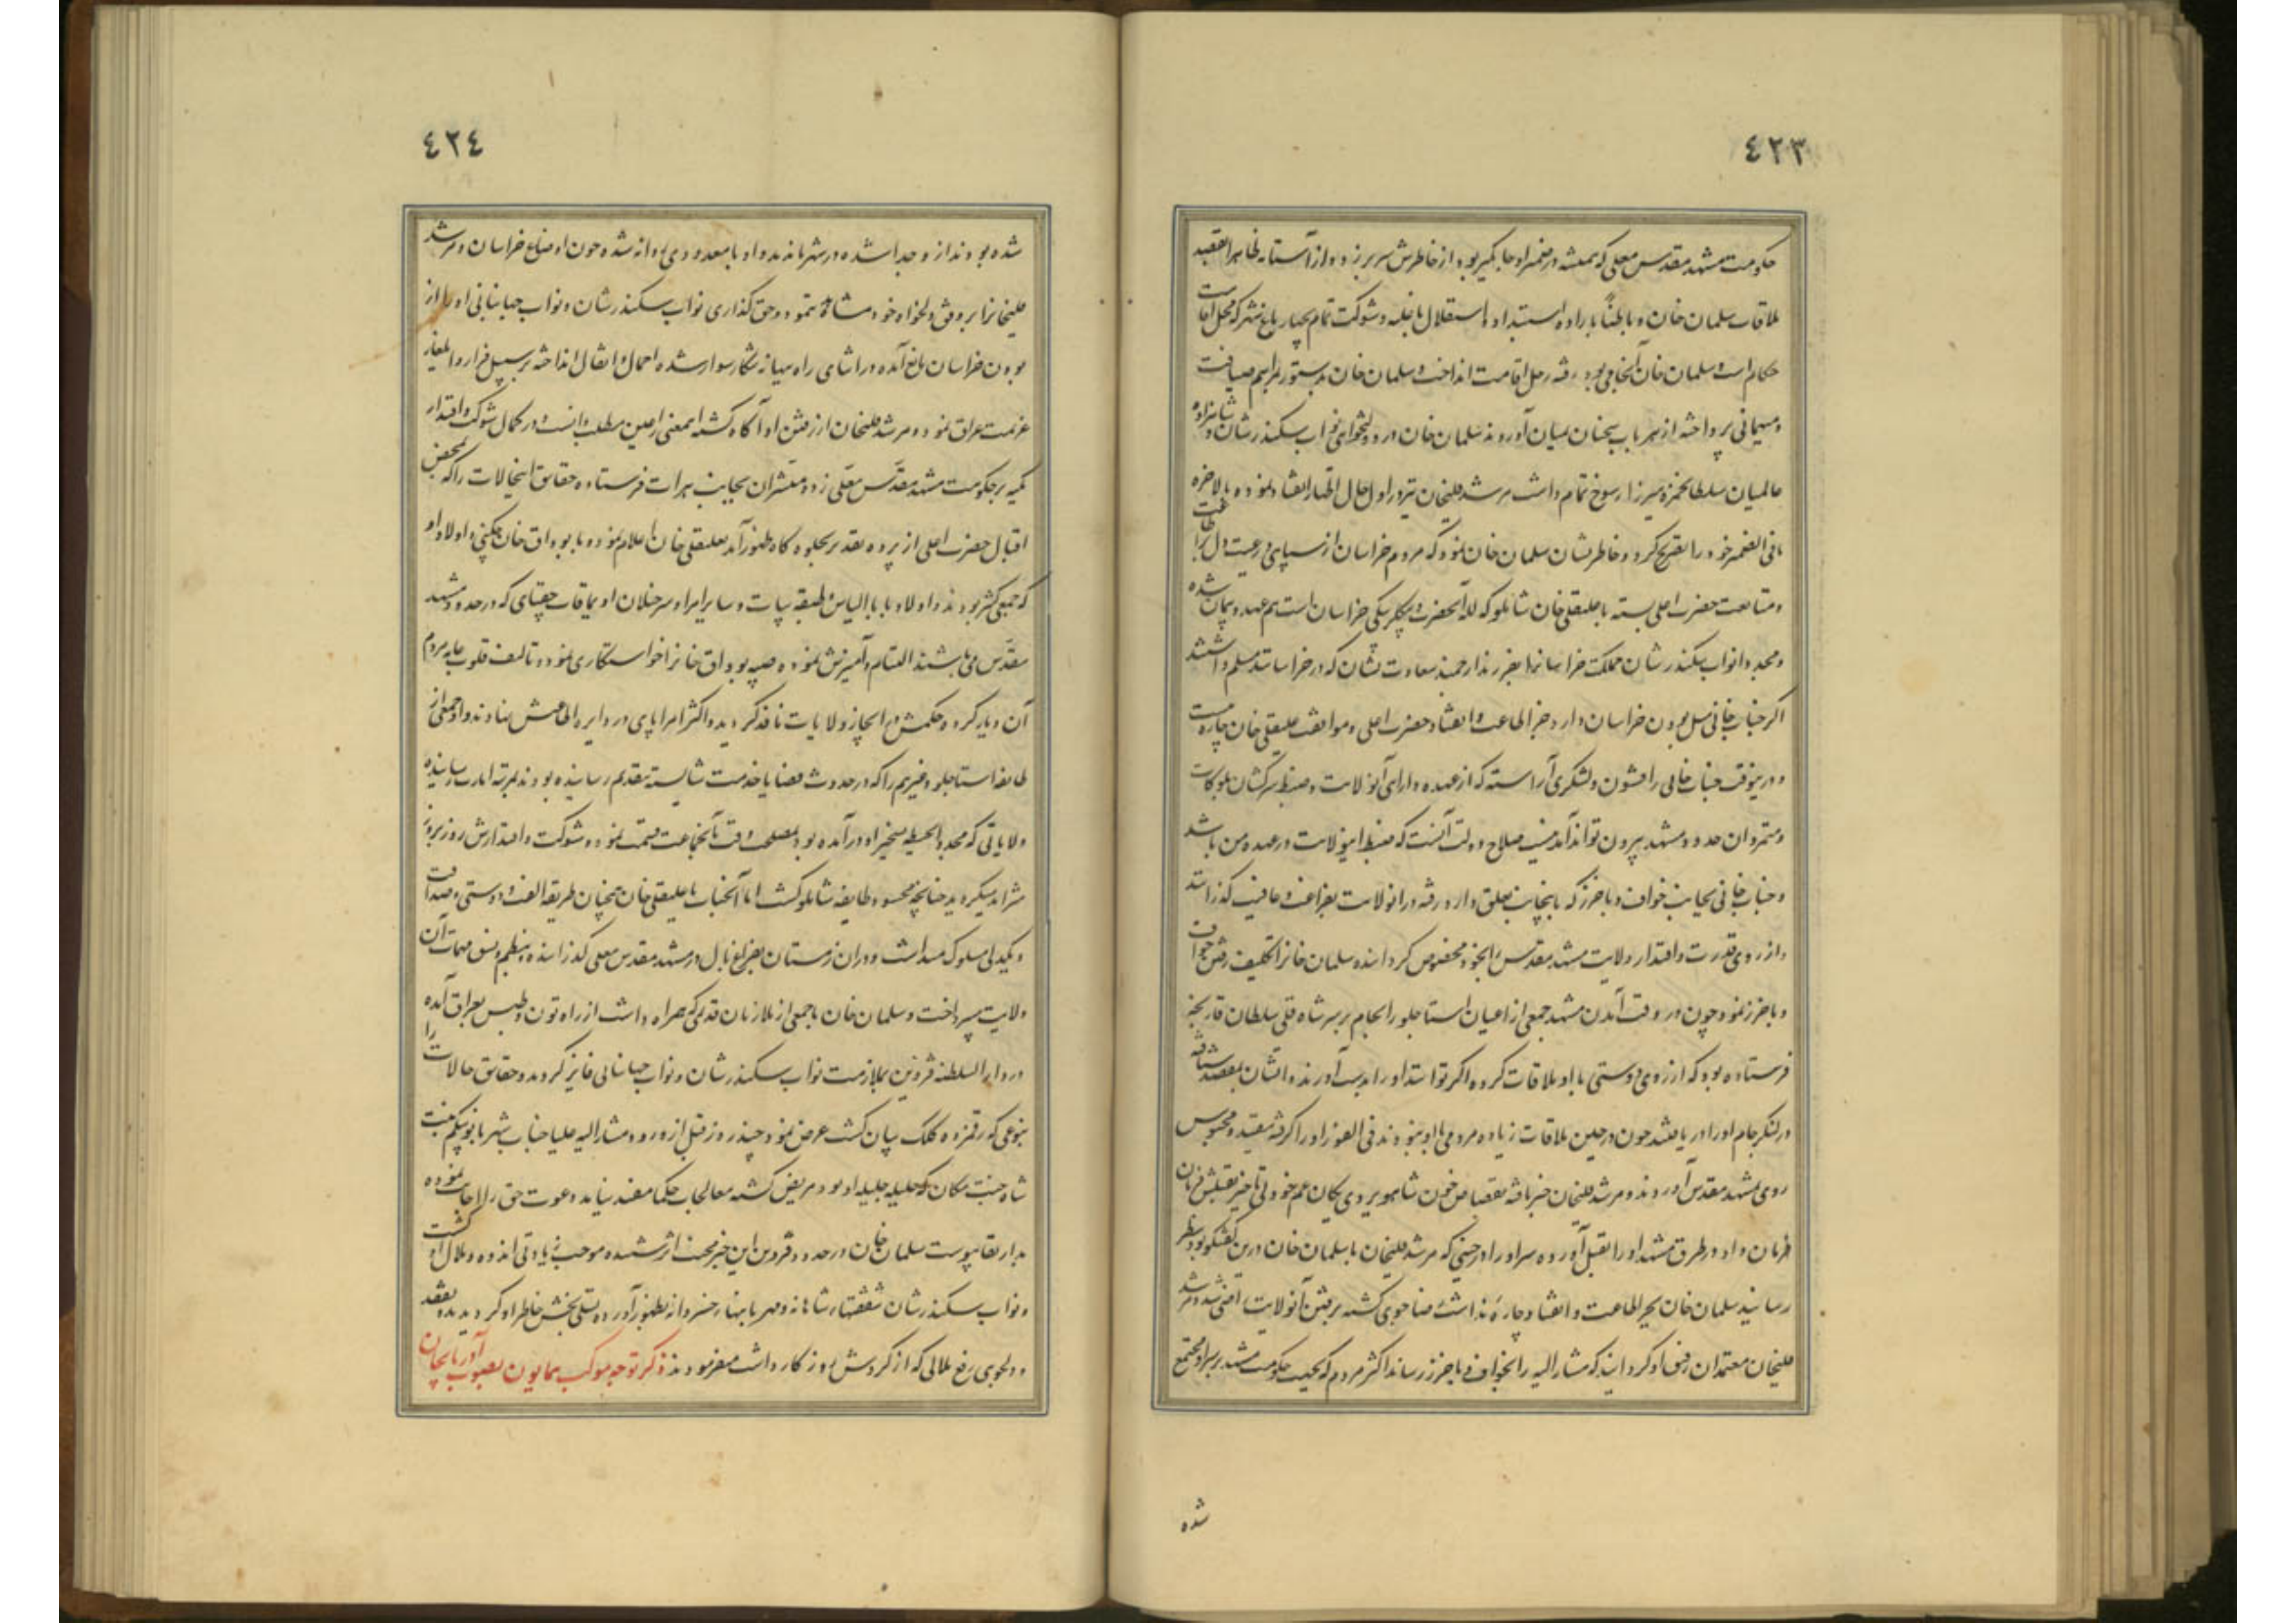 ٤٢٣
حکومت مشهد مقدس معلی که همیشه در ضمیر او جایگیر بود از خاطرش سر بر زده و از آستانه ظاهرا بقصد
ملاقات سلمان خان و باطنا باراده استبداد و استقلال با غلبه و شوکت تمام بچهار باغ شهر که محل اقامت
حکام است و سلمان خان آنجا می‌بود رفته رحل اقامت انداخت و سلمان خان بدستور بمراسم ضیافت
و میهمانی پرداخته از هر باب سخنان بمیان آوردند سلمان خان در دولتخواهی نواب سکندرشان و شاهزاده
عالمیان سلطان حمزه میرزا رسوخ تمام داشت مرشد قلیخان نیز در اول حال اظهار انقیاد نموده بالاخره
ما فی الضمیر خود را تصریح کرد و خاطرنشان سلمان خان نمود که مردم خراسان از سپاهی و رعیت دل بر اطاعت
و متابعت حضرت اعلی بسته با علیقلی خان شاملو که لله آنحضرت و بیگلربیگی خراسان است هم عهد و پیمان شده
و مجددا نواب سکندرشان مملکت خراسانرا بفرزند ارجمند سعادت نشان که در خراسانند مسلم داشتند
اگر جناب خانی میل بودن خراسان دارد جز اطاعت و انقیاد حضرت اعلی و موافقت علیقلی خان چاره نیست
و درینوقت جناب خانی را قشون و لشکری آراسته که از عهده دارائی آنولایت و ضبط سرکشان بلوکات
و متمردان حدود مشهد بیرون تواند آمد نیست صلاح دولت آنست که ضبط اینولایت در عهده من باشد
و جناب خانی بجانب خواف و باخرز که بایجانب تعلق دارد رفته در آنولایت بفراغت و عافیت گذراند
و از روی قدرت و اقتدار ولایت مشهد مقدس را بخود مخصوص گردانیده سلمان خانرا تکلیف رفتن خواف
و باخرز نمود چون در وقت آمدن مشهد جمعی از اعیان استاجلو را بجام بر سر شاه قلی سلطان قارنجه
فرستاده بود که از روی دوستی با او ملاقات کرده اگر توانند او را بدست آورند و ایشان بمقصد شتافته
در لنگر جام او را دریافتند چون در حین ملاقات زیاده مردمی با او نبودند فی الفور او را گرفته مقید و محبوس
روی بمشهد مقدس آوردند و مرشد قلیخان خبر یافته بقصاص خون شاهویردی یکان عم خود بی تاخیر بقتلش فرمان
فرمان داد و در طرق مشهد او را بقتل آورده سر او را در حینی که مرشد قلیخان با سلمان خان درین گفتگو بود بنظر
رسانید سلمان خان بجز اطاعت و انقیاد چاره نداشت رضاجوی گشته برفتن آنولایت راضی شد و مرشد
قلیخان معتمدان رفیق او گردانید که مشار الیه را بخواف و باخرز رساند اکثر مردم که بجهت حکومت مشهد بر سر او مجتمع
شده
٤٢٤
شده بودند از و جدا شده در شهر ماندند و او با معدودی روانه شد چون اوضاع خراسان و مرشد
قلیخانرا بر وفق دلخواه خود مشاهده ننمود و حق گذاری نواب سکندرشان و نواب جهانبانی او را از
بودن خراسان مانع آمده در اثنای راه ببهانه شکار سوار شده احمال و اثقال انداخته بر سبیل فرار و ایلغار
عزیمت عراق نمود و مرشد قلیخان از رفتن او آگاه گشته اینمعنی را عین مطلب دانست و در کمال شوکت و اقتدار
تکیه بر حکومت مشهد مقدس معلی زد و مبشران بجانب هرات فرستاده حقایق اینحالات را که بمحض
اقبال حضرت اعلی از پرده تقدیر بجلوه گاه ظهور آمد بعلیقلی خان اعلام نموده با بوداق خان چگنی و اولاد او
که جمعی کثیر بودند و اولاد بابا الیاس و طبقه بیات و سایر امرا و سرخیلان اویماقات چغتای که در حدود مشهد
مقدس می‌باشند التیام و آمیزش نموده صبیه بوداق خانرا خواستگاری نمود و تالیف قلوب عامه مردم
آن دیار کرده حکمش در انجاز ولایات نافذ گردید و اکثر امرا پای در دایره اطاعتش نهادند و او جمعی از
طایفه استاجلو و غیرهم را که در حدوث قضایا خدمت شایسته بتقدیم رسانیده بودند بمرتبه امارت رسانیده
ولایاتی که مجددا بحیطه تسخیر او درآمده بود بمصلحت وقت بآنجماعت قسمت نمود و شوکت و اقتدارش روز بروز
متزاید میگردید چنانچه محسود طایفه شاملو گشت اما آنجناب با علیقلی خان همچنان طریقه الفت و دوستی و صداقت
و یکدلی مسلوک میداشت و در آن زمستان بفراغ بال در مشهد مقدس معلی گذرانیده بنظم و نسق مهمات آن
ولایت میپرداخت و سلمان خان با جمعی از ملازمان قدیمی که همراه داشت از راه تون و طبس بعراق آمده
در دار السلطنه قزوین بملازمت نواب سکندرشان و نواب جهانبانی فایز گردید و حقایق حالات را
بنوعی که رقمزده کلک بیان گشت عرض نمود چند روز قبل از ورود مشار الیه علیا جناب شهربانو بیگم بنت
شاه جنت مکان که حلیله جلیله او بود مریض گشته معالجات حکما مفید نیامد دعوت حق را اجابت نموده
بدار بقا پیوست سلمان خان در حدود قزوین این خبر محنت اثر شنیده موجب زیادتی اندوه و ملال او گشت
و نواب سکندرشان شفقتهای شاهانه و مهربانیهای خسروانه بظهور آورده تسلی بخش خاطر او گردیدند بتفقد
و دلجویی رفع ملالی که از گردش روزگار داشت میفرمودند ذکر توجه موکب همایون بصوب آذربایجان